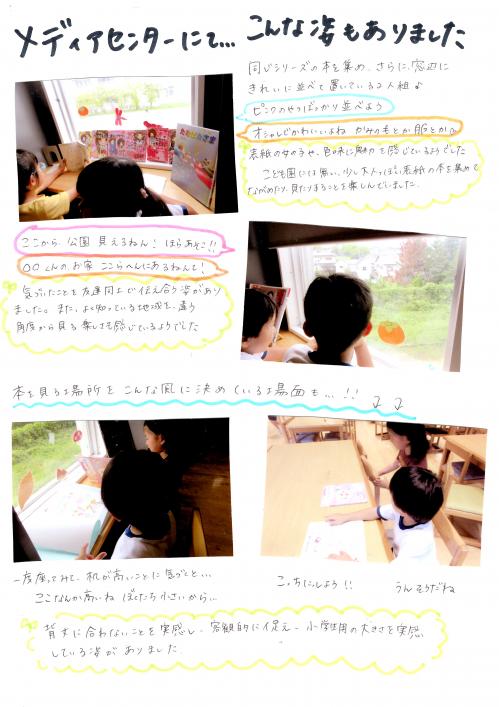 メディアセンターにて... こんな姿もありました
同じシリーズの本を集め、さらに、窓辺に
きれいに並べて置いている2人組♪
ピンクのやつばっかり並べよう
オシャレでかわいいよね かみのもとか服とか
表紙の女の子や、色味に魅力を感じているようでした
こども園には無い、少し大人っぽい表紙の本を集めて
ながめたり、見たりすることを楽しんでいました。
ここから、公園 見えるねん! ほらあそこ!!
〇〇くんの、お家 ここらへんにあるねんて!
気づいたことを友達同士で伝え合う姿があり
ました。また、よく知っている地域を、違う
角度から見る楽しさも感じているようでした
本を見る場所を こんな風に決めている場面も...!!
一度座ってみて、机が高いことに気づくと...
ここなんか高いね ぼくたち小さいから...
こっちにしよう!!
うん そうだね
背丈に合わないことを実感し、客観的に捉え、小学生用の大きさを実感
している姿がありました